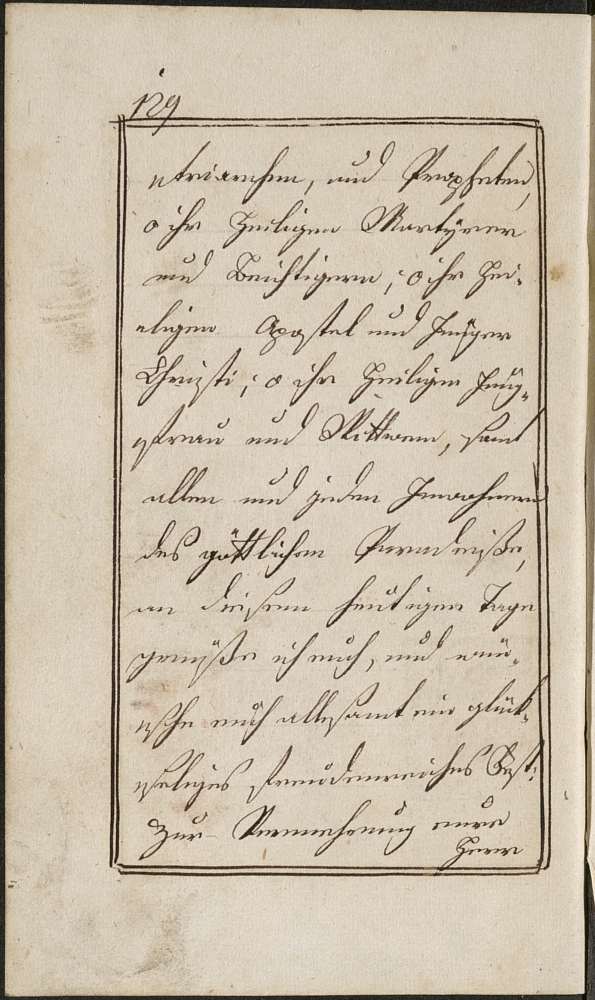 129
atriarchen, und Propheten,
o ihr heiligen Martÿrer
und Beichtigern; o ihr hei-
eligen Apostel und Jünger
Christi; o ihr heiligen Jung-
gfrau und Wittwen, samt
allen und jeden Inwohnern
des göttlichen Paradeißes,
an diesem heutigen Tage
grüße ich euch, und wün-
nsche euch allesamt ein glück-
kseliges freudenreiches Fest:
Zur Vermehrung eurer
Herr